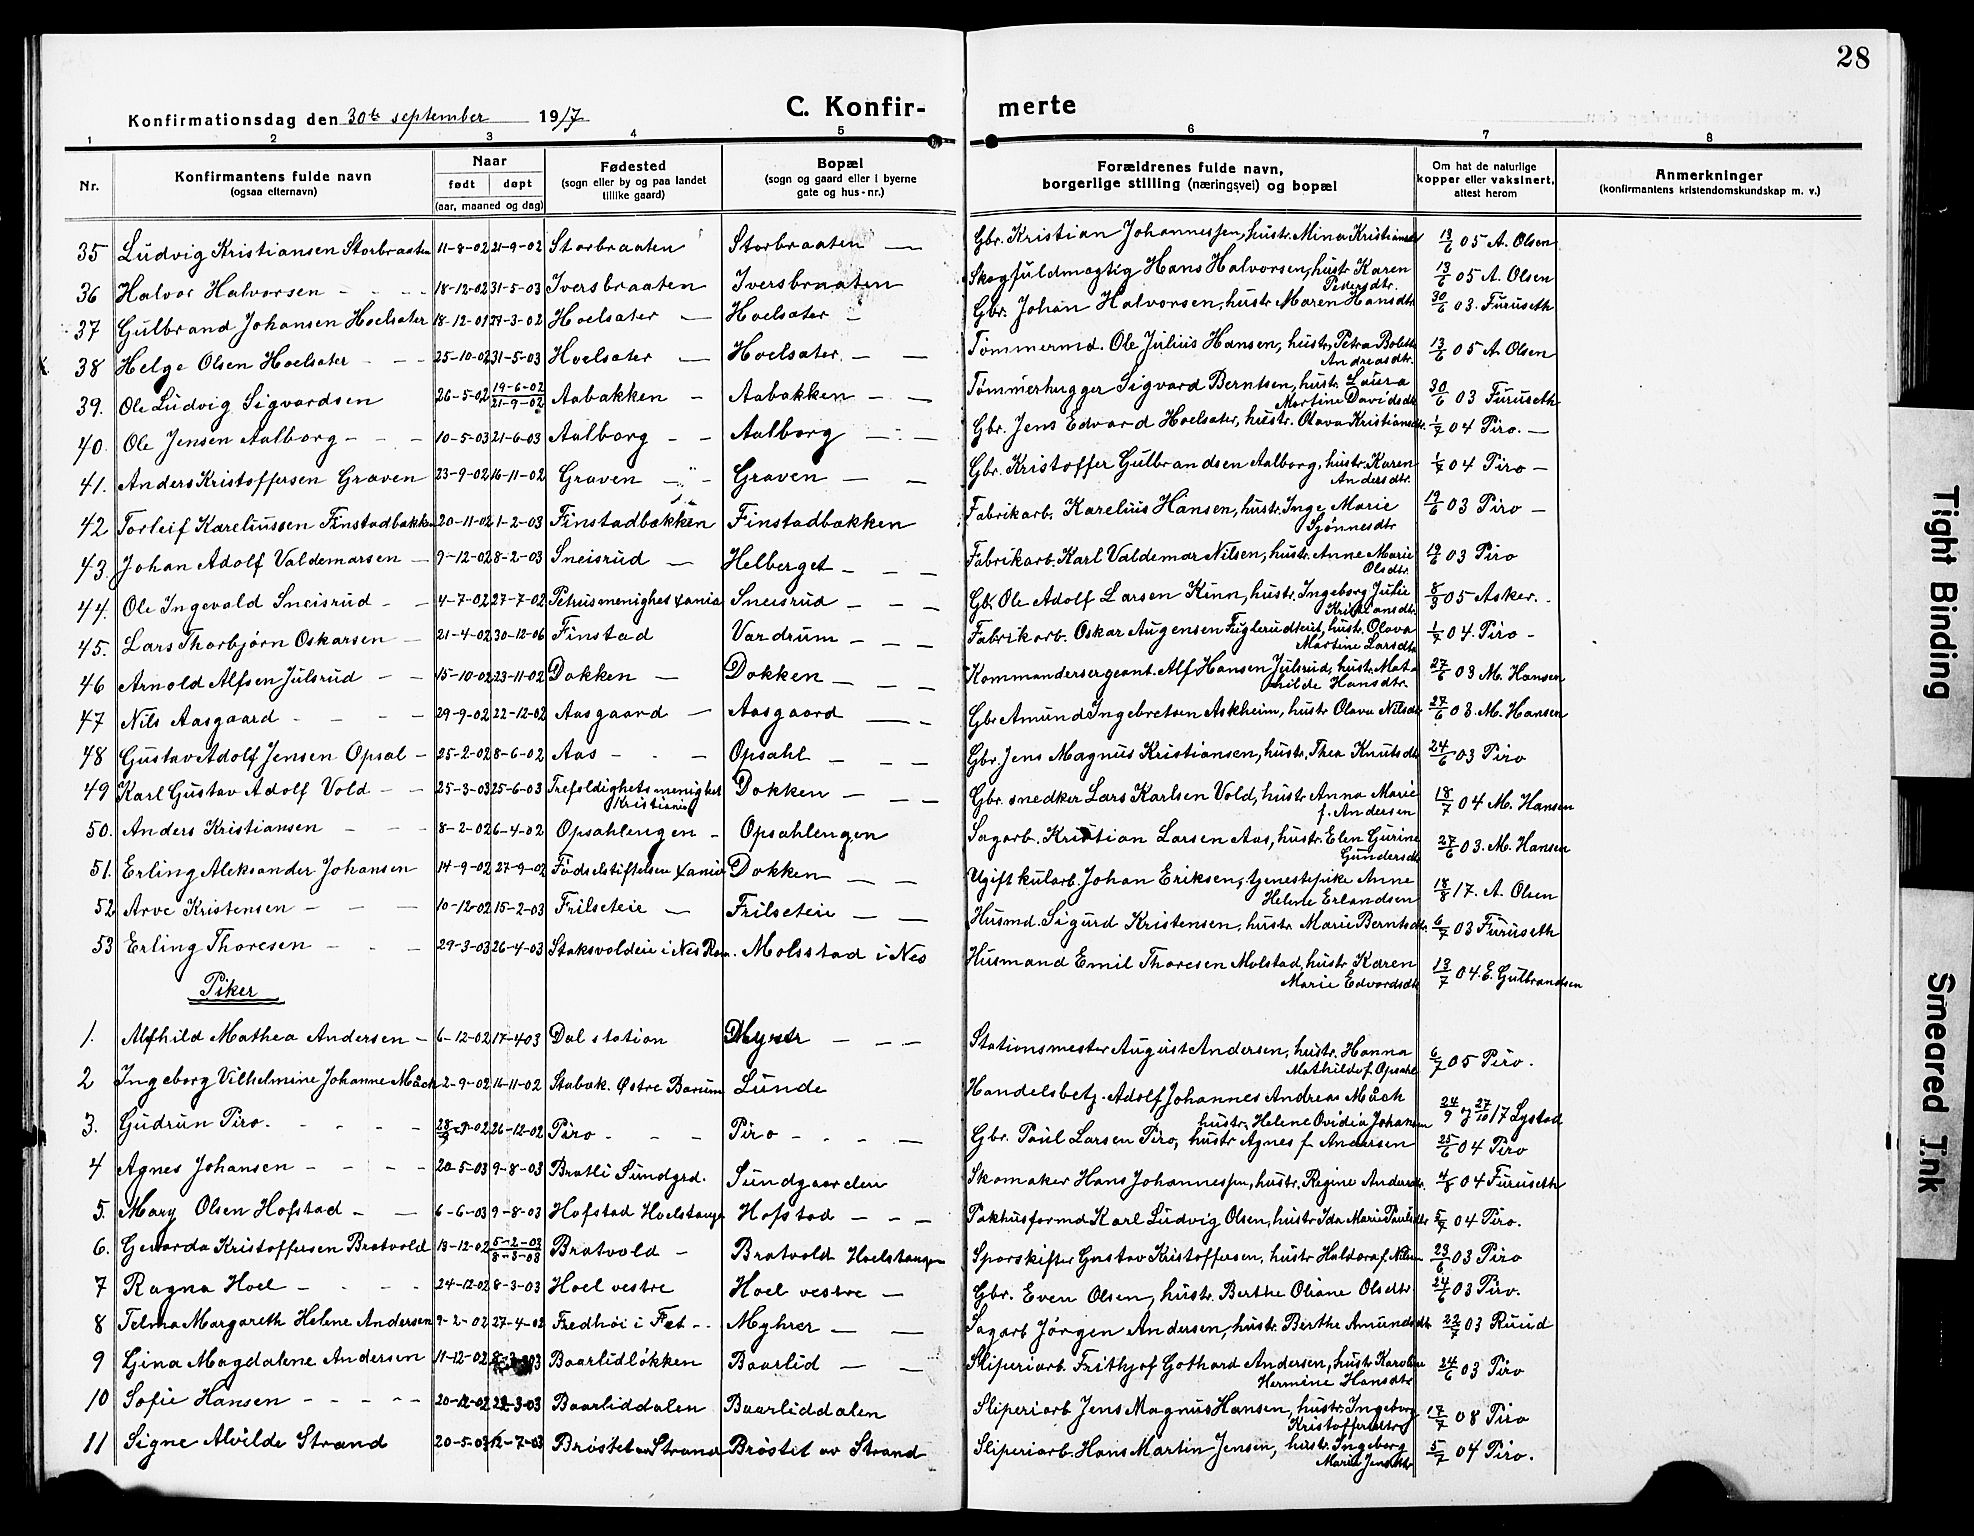 28
Konfirmationsdag den 30te september 1917
C. Konfirmerte
1 2 3 4 5 6 7 8
Nr.
Konfirmantens fulde navn
(ogsaa elternavn)
Naar
født døpt
(aar, maaned og dag)
Fødested
(sogn eller by og paa landet
tillike gaard)
Bopæl
(sogn og gaard eller i byerne
gate og hus-nr.)
Forældrenes fulde navn,
borgerlige stilling (næringsvei) og bopæl
Om hat de naturlige
kopper eller vaksinert,
attest herom
Anmerkninger
(konfirmantens kristendomskundskap m. v.)
35 Ludvig Kristiansen Storbraaten 11-8-02 21-9-02 Storbraaten Storbraaten — Gbr. Kristian Johannessen, hustr. Mina Kristiansdtr 13/6 05 A. Olsen
36 Halvor Halvorsen - - - 18-12-02 31-5-03 Iversbraaten Iversbraaten Skogfuldmagtig Hans Halvorsen, hustr Karen Pedersdtr. 13/6 05 A. Olsen
37 Gulbrand Johansen Hoelsater 18-12-01 27-3-02 Hoelsater — Hoelsater — Gbr. Johan Halvorsen, hustr Maren Hansdtr 30/6 03. Furuseth
38 Helge Olsen Hoelsater - - - 25-10-02 31-5-03 Hoelsater — Hoelsater. - — Tømmermd. Ole Julius Hansen, hustr. Petra Bolette Andreasdtr. 13/6 05 A. Olsen
39. Ole Ludvig Sigvardsen 26-5-02 19-6-02 21-9-02 Aabakken - Aabakken - — Tømmerhugger Sigvard Berntsen, hustr. Laura Martine Davidsdtr 30/6 03 Furuseth
40. Ole Jensen Aalborg - - - 10-5-03 21-6-03 Aalborg - - Aalborg — - — Gbr. Jens Edvard Hoelsater, hustr. Olava Kristiansdtr. 1/7 04 Piro. —
41. Anders Kristoffersen Graven 23-9-02 16-11-02 Graven — - Graven — — Gbr. Kristoffer Gulbrandsen Aalborg, hustr. Karen Andersdtr. 1/7 04 Piro —
42 Torleif Kareliussen Finstadbakken 20-11-02 1-2-03 Finstadbakken Finstadbakken Fabrikarb. Karelius Hansen, hustr. Inge Marie Sjønnesdtr 19/6 03 Piro —
43. Johan Adolf Valdemarsen — 9-12-02 8-2-03 Sneisrud — Helberget - — — Fabrikarb. Karl Valdemar Nilsen, hustr. Anne Marie Olsdtr. 19/6 03 Piro
44. Ole Ingevald Sneisrud - - 4-7-02 27-7-02 Petrusmenighet Xania Sneisrud - — — Gb. Ole Adolf Larsen Kinn, hustr. Ingeborg Julie Kristiansdtr. 8/3 05 Asker. -
45. Lars Thorbjørn Oskarsen — 21-4-02 30-12-06 Finstad Vardrum — — — Fabrikarb. Oskar Augensen Fuglerudteiet, hustr. Olava Martine Larsdtr 1/7 04. Piro -
46 Arnold Alfsen Julsrud - - 15-10-02 23-11-02 Dokken — Dokken — — — Kommandersergeant Alf Hansen Julsrud, hustr. Mathilde Hansdtr. 27/6 03 M. Hansen
47 Nils Aasgaard - - - - 29-9-02 22-12-02 Aasgaard — Aasgaard — — Gbr Amund Ingebretsen Askheim, hustr Olava Nilsdtr 27/6 03. M. Hansen
48 Gustav Adolf Jensen Opsal - 25-2-02 8-6-02 Aas - - - Opsahl — — — Gbr. Jens Magnus Kristiansen, hustr. Thea Knutsdtr 24/6 03 Piro
49 Karl Gustav Adolf Vold - - 25-3-03 25-6-03 Trefoldighetsmenighet Kristiania Dokken — — — Gbr. snedker Lars Karlsen Vold, hustr Anna Marie f. Andersen 18/7 04 M. Hansen
50. Anders Kristiansen - - - 8-2-02 6-4-02 Opsahlengen - Opsahlengen Sagarb. Kristian Larsen Aas, hustr. Elen Gurine Gundersdtr 27/6 03. M. Hansen
51. Erling Aleksander Johansen 14-9-02 27-9-02 Fødselstiftelsen Xania Dokken — — Ugift kularb. Johan Eriksen, tjenestepike Anne Helene Erlandsen 18/8 17. A. Olsen
52 Arve Kristensen - - - 10-12-02 15-2-03 Frilseteie — Frilseteie — — Husmd. Sigurd Kristensen, hustr. Marie Berntsdtr. 6/7 03 Furuseth
53 Erling Thoresen - - - 29-3-03 26-4-03 Staksvoldeie i Nes Rom. Molsstad i Nes Husmand Emil Thoresen Molstad, hustr. Karen Marie Edvardsdtr 13/7 04. E. Gulbrandsen
Piker
1. Alfhild Mathea Andersen - 6-12-02 17-4-03 Dal station Myrer — - — Stationsmester August Andersen, hustr. Hanna Mathilde f. Opsahl 6/7 05 Piro.
2 Ingeborg Vilhelmine Johanne Mück 2-9-02 16-11-02 Stabæk. Østre Bærum Lunde Handelsbetj. Adolf Johannes Andreas Mück hustr. Helene Ovidia Johansen 24/9 og 27/10 17 Lystad
3. Gudrun Piro. - - - - 28/9-02 26-12-02 Piro - - - Piro - - - — Gbr. Paul Larsen Piro, hustr Agnes f. Andersen 25/6 04 Piro
4 Agnes Johansen - - - - 20-5-03 9-8-03 Bratli Sundgrd. Sundgaarden Skomaker Hans Johannessen, hustr. Regine Andersdtr. 4/8 04 Furuseth
5. Mary Olsen Hofstad - - 6-6-03 9-8-03 Hofstad Hoelstangen Hofstad — - — Pakhusformd Karl Ludvig Olsen, hustr Ida Marie Paulsdtr 5/7 04 Piro.
6. Gerarda Kristoffersen Bratvold 13-12-02 5-2-03 8-3-08 Bratvold - Bratvold Hoelstangen Sporskifter Gustav Kristoffersen, hustr Haldora f. Nilsen 23/6 03 Piro
7 Ragna Hoel - - - - 24-12-02 8-3-03 Hoel vestre Hoel vestre — Gbr. Even Olsen, hustr. Berthe Oliane Olsdtr 24/6 03 Piro.
8 Telma Margareth Helene Andersen 9-2-02 27-4-02 Fredhøi i Fet - - Myhrer — — Sagarb Jørgen Andersen, hustr. Birthe Amundsdtr 22/7 03 Ruud
9 Gina Magdalene Andersen 11-12-02 Baarlidløkken Baarlid — — Sliperiarb. Frithjof Gothard Andersen, hustr Karoline Hermine Hansdtr 24/6 03 Piro
10 Sofie Hansen - - - - 20-12-02 22-3-03 Baarliddalen Baarliddalen Sliperiarb. Jens Magnus Hansen, hustr. Ingeborg Kristoffersdtr 17/7 08 Piro
11 Signe Alvilde Strand 20-5-03 12-7-03 Brøstet av Strand Brøstet av Strand Sliperiarb. Hans Martin Jensen, hustr. Ingeborg Marie Jensdtr 5/7 04 Piro.
Tight Binding
Smeared Ink